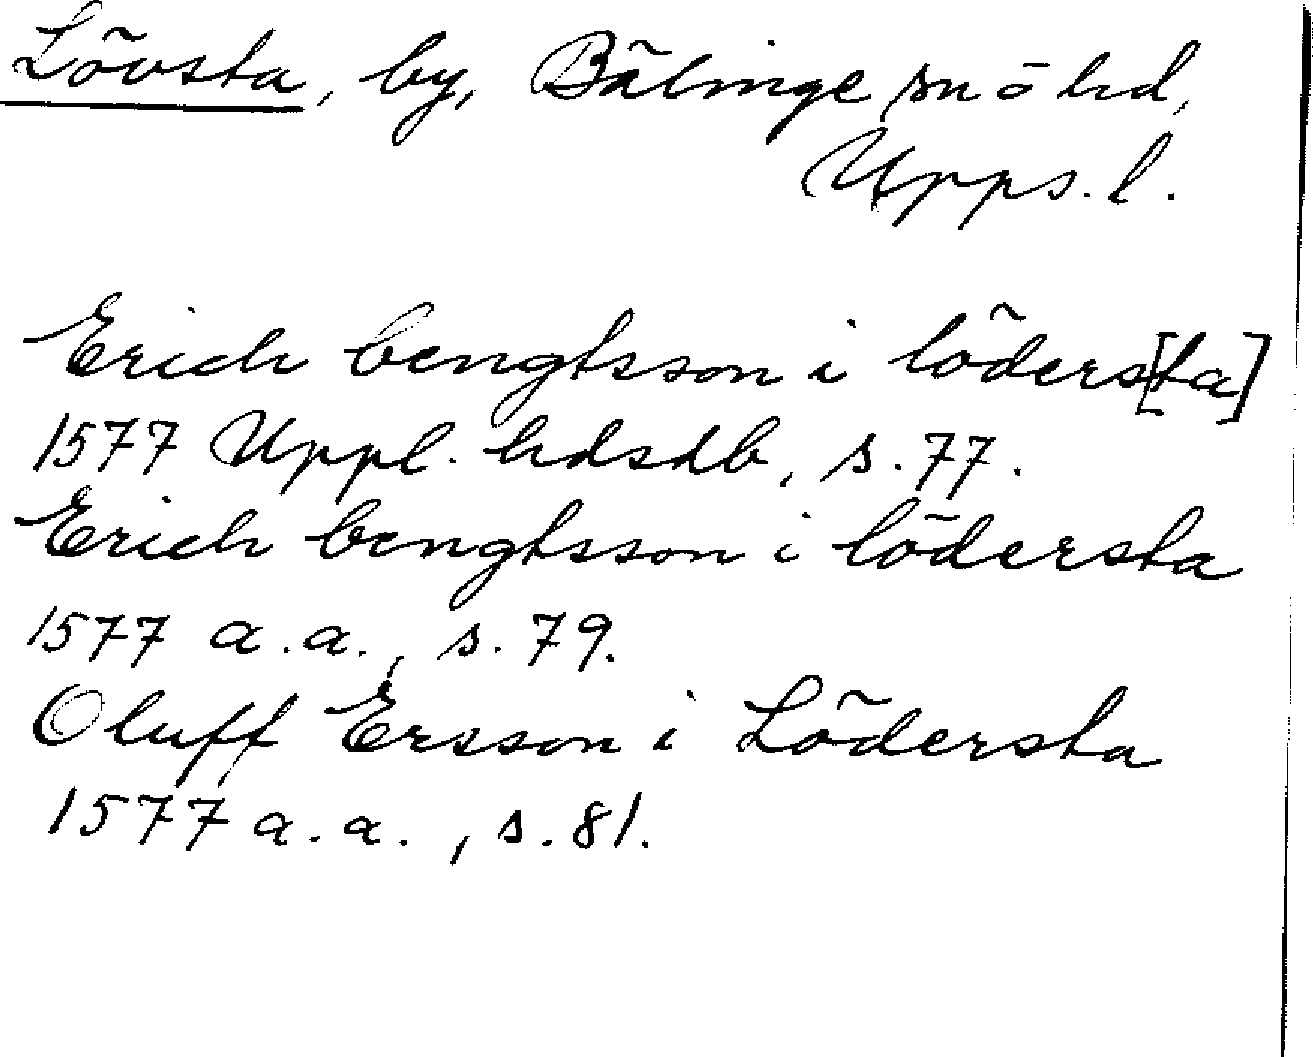 Lövsta, by, Bälinge sn o hd,
Upps. l.
Erich bengtsson i löders[ta]
1577 Uppl. hdsdb, s. 77.
Erich bengtsson i lödersta
1577 a.a., s. 79.
Oluff Ersson i Lödersta
1577 a.a., s. 81.